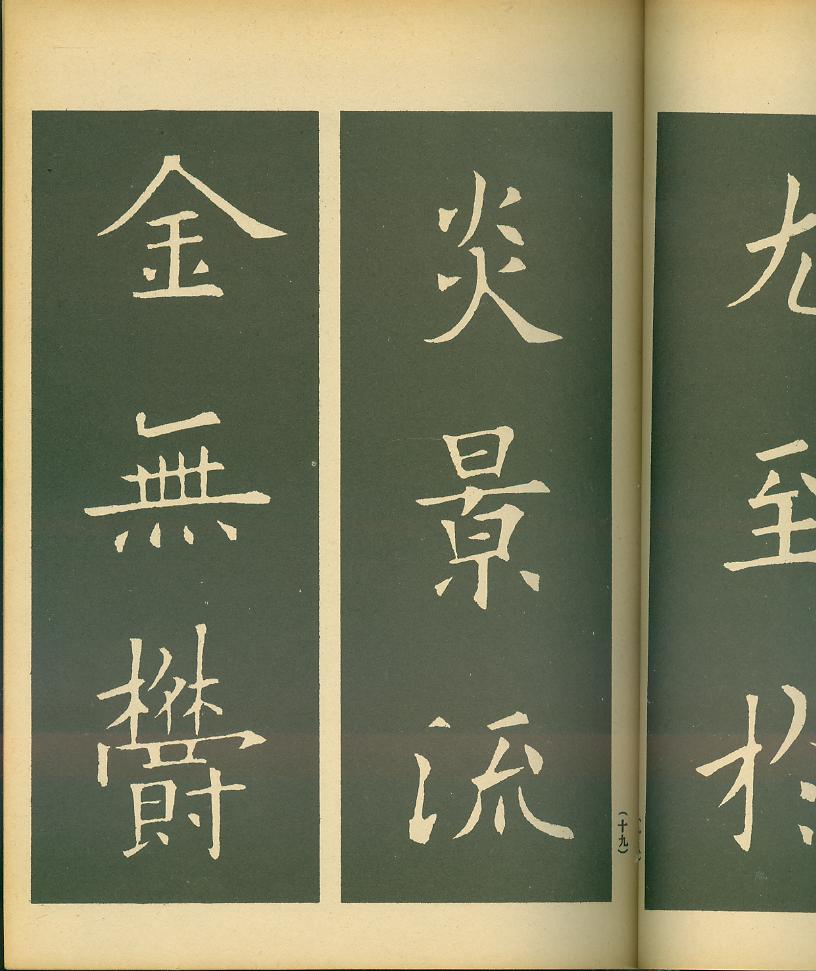 尤至於
炎景流
金無鬱
（十九）